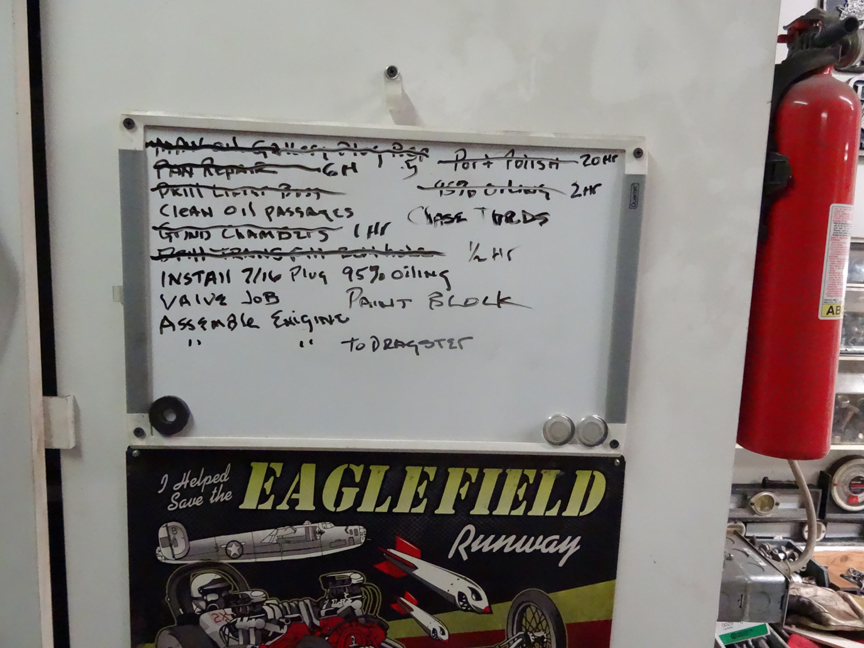 MAIN OIL Gallery Plug .5
Port Polish 20 Hr
PAN REPAIR 6 H
95% Oiling 2 Hr
Drill
CLEAN OIL PASSAGES
CHASE THRDS
GRIND CHAMBERS 1 Hr
1/2 Hr
INSTALL 7/16 Plug 95% Oiling
VALVE JOB
PAINT BLOCK
ASSEMBLE ENGINE
" " TO DRAGSTER
I Helped
Save the
EAGLE FIELD
Runway
AB